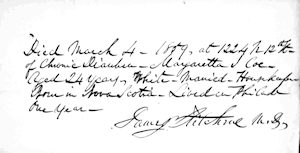 Died March 4 - 1879, at 1224 N 12th
of Chronic Diarrhea - Margaretta J Coe -
Aged 24 years, White - Married - Housekeeper
Born in Nova Scotia - Lived in Philada
One Year -
James M.D.